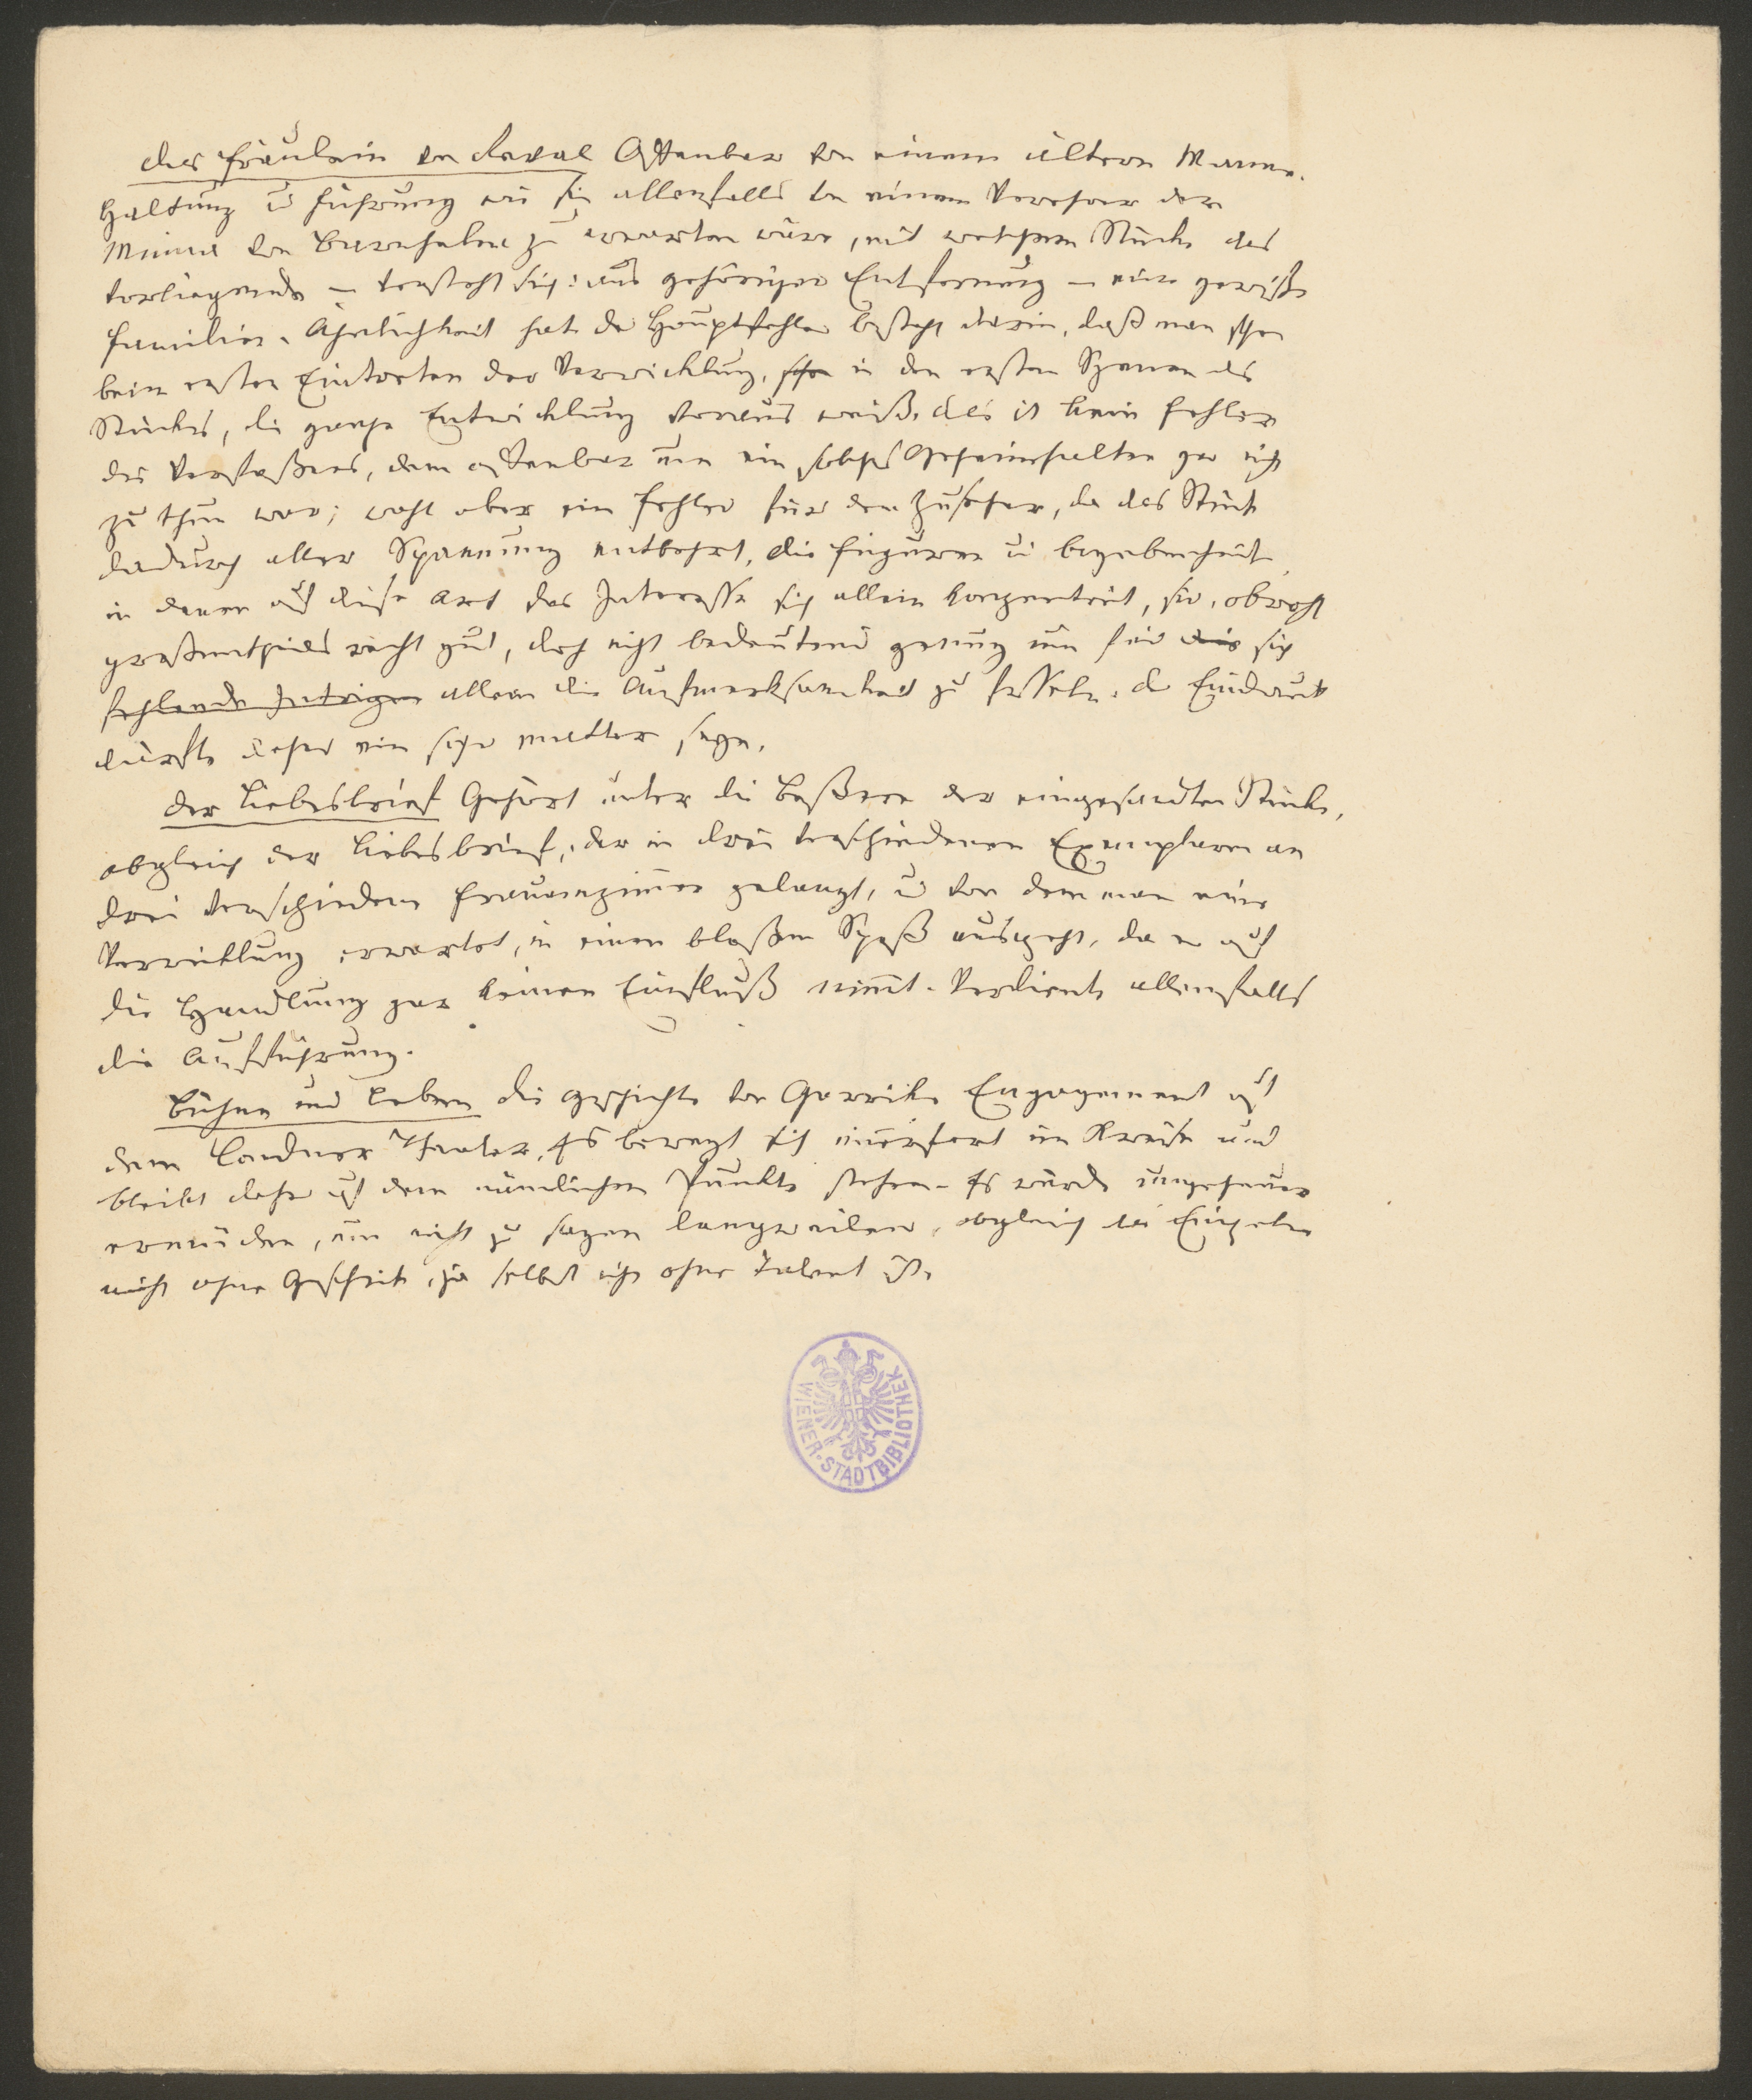 das Fräulein von Laval Offenbar von einem ältern Manne.
Haltung u Führung wie sie allenfalls von einem Verehrer der
Minna von Barnhelm zu erwarten wäre, mit welchem Stücke das
vorliegende – versteht sich: aus gehöriger Entfernung – eine gewiße
Familien-Ähnlichkeit hat. der Hauptfehler besteht darin, daß man schon
beim ersten Eintreten der Verwicklung, schon in den ersten Szenen des
Stückes, die ganze Entwicklung voraus weiß. das ist kein Fehler
des Verfaßers, dem offenbar um ein solches Geheimhalten gar nicht
zu thun war; wohl aber ein Fehler für den Zuseher, da das Stück
dadurch aller Spannung entbehrt, die Figuren u Begebenheit
in denen auf diese Art das Interesse sich allein konzentrirt, sind, obwohl
großentheils recht gut, doch nicht bedeutend genug um für das sich
fehlende Intrigen allein die Aufmerksamkeit zu fesseln. der Eindruck
dürfte daher ein sehr matter seyn.
der Liebesbrief Gehört unter die beßeren der eingesandten Stücke,
obgleich der Liebesbrief, der in drei verschiedenen Exemplaren an
drei verschiedene Frauenzimmer gelangt, u von dem man eine
Verwicklung erwartet, in einen bloßen Spaß ausgeht, da er auf
die Handlung gar keinen Einfluß nimmt. Verdiente allenfalls
die Aufführung.
Bühne und Leben die Geschichte von Garriks Engagement auf
dem Londner Theater. Es bewegt sich immerfort im Kreise und
bleibt daher auf dem nämlichen Punkte stehen. Es würde ungeheuer
ermüden, um nicht zu sagen langweilen, obgleich das Einzelne
nicht ohne Geschick, ja selbst nicht ohne Talent ist.
WIENER STADTBIBLIOTHEK